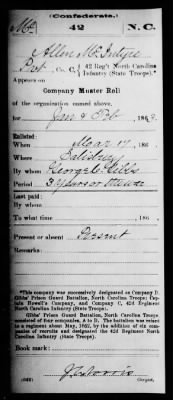 (Confederate.)
Mc 42 N.C.
Allen McIntyre
Pvt, Co. C, 42 Reg't North Carolina
Infantry (State Troops).*
Appears on
Company Muster Roll
of the organization named above,
for Jan & Feb, 1863.
Enlisted:
When Mar 17, 186
Where Salisbury
By whom George C. Gibbs
Period 3 Years or the War
Last paid:
By whom
To what time , 186
Present or absent Present
Remarks:
*This company was successively designated as Company D,
Gibbs' Prison Guard Battalion, North Carolina Troops; Cap-
tain Howell's Company, and Company C, 42d Regiment
North Carolina Infantry (State Troops).
Gibbs' Prison Guard Battalion, North Carolina Troops,
consisted of four companies, A to D. The battalion was return-
ed to a regiment about May, 1862, by the addition of six com-
panies of recruits and designated the 42d Regiment North
Carolina Infantry (State Troops).
Book mark:
(642)
Copyist.